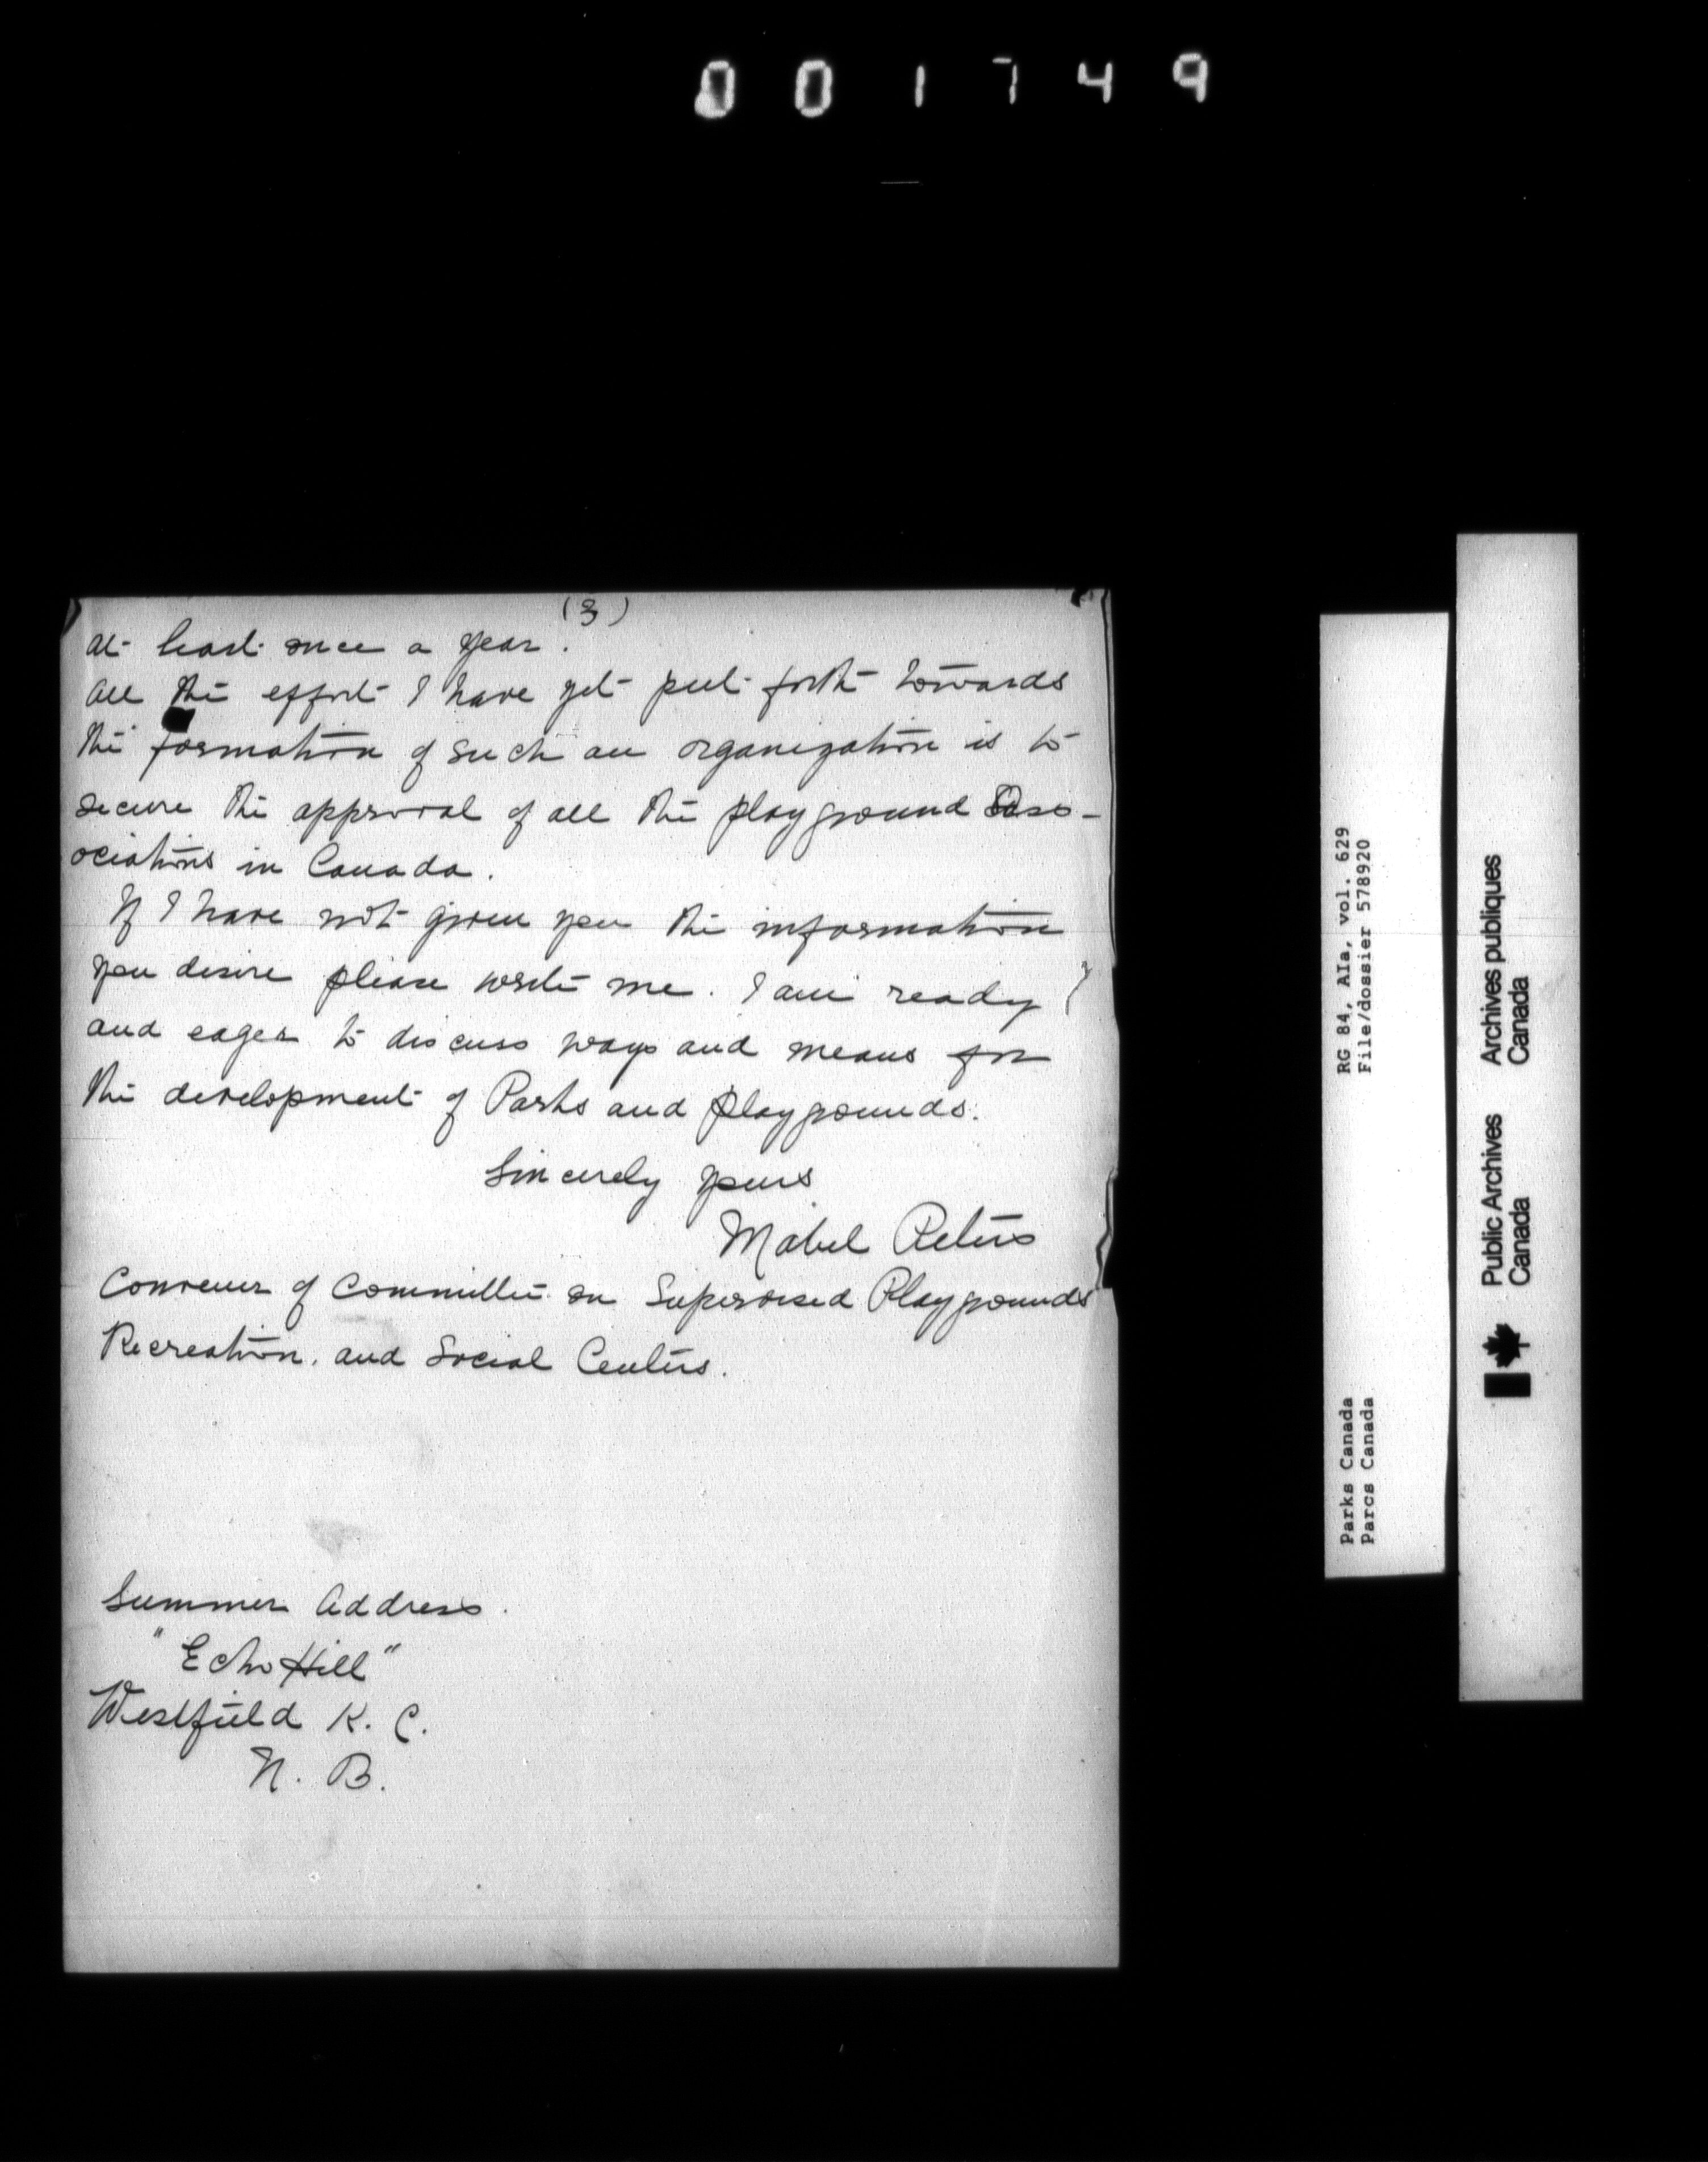 001749
(3)
at least once a year.
All the effort I have yet put forth towards
the formation of such an organization is to
secure the approval of all the playground Ass-
ociations in Canada.
If I have not given you the information
you desire please write me. I am ready
and eager to discuss ways and means for
the development of Parks and playgrounds.
Sincerely yours
Mabel Peters
Convener of Committee on Supervised Playgrounds
Recreation, and Social Centers.
Summer Address.
"Echo Hill"
Westfield K. C.
N. B.
RG 84, AIa, vol. 629
File/dossier 578920
Parks Canada
Parcs Canada
Public Archives
Canada
Archives publiques
Canada